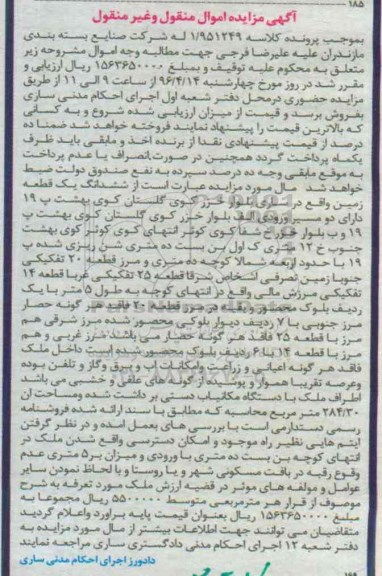 ۱۸۵
آگهی مزایده اموال منقول وغیر منقول
بموجب پرونده کلاسه ۱/۹۵۱۲۴۹ له شرکت صنایع بسته بندی
مازندران علیه علیرضا فرجی جهت مطالبه وجه اموال مشروحه زیر
متعلق به محکوم علیه توقیف و بمبلغ ۱۵۶۳۶۵۰۰۰۰ ریال ارزیابی و
مقرر شد در روز مورخ چهارشنبه ۹۶/۴/۱۴ از ساعت ۹ الی ۱۱ از طریق
مزایده حضوری درمحل دفتر شعبه اول اجرای احکام مدنی ساری
بفروش برسد و قیمت از میزان ارزیابی شده شروع و به کسانی
که بالاترین قیمت را پیشنهاد نمایند فروخته خواهد شد ضمنا ده
درصد از قیمت پیشنهادی نقدا از برنده اخذ و مابقی باید ظرف
یکماه پرداخت گردد همچنین در صورت انصراف یا عدم پرداخت
به موقع مابقی وجه ده درصد سپرده به نفع صندوق دولت ضبط
خواهد شد مال مورد مزایده عبارت است از ششدانگ یک قطعه
زمین واقع در ساری بلوار خزر کوی گلستان کوی بهشت پ ۱۹
دارای دو مسیر ورودی الف بلوار خزر کوی گلستان کوی بهشت پ
۱۹ و ب بلوار خزر خ شفا کوی کوثر انتهای کوی کوثر کوی بهشت
جنوب خ ۱۲ متری ک اول بن بست ده متری شن ریزی شده پ
۱۹ با حدود اربعه شمالا کوچه ده متری و مرز قطعه ۲۰ تفکیکی
جنوبا زمین تصرفی اشخاص شرقا قطعه ۲۵ تفکیکی غربا قطعه ۱۴
تفکیکی مرزش مالی واقع در انتهای کوچه به طول ۵ متر با یک
ردیف بلوک محصور و بقیه در مرز قطعه ۲۰ فاقد هر گونه حصار
مرز جنوبی با ۷ ردیف دیوار بلوکی محصور شده مرز شرقی هم
مرز با قطعه ۲۵ فاقد هر گونه حصار می باشد مرز غربی و هم
مرز با قطعه ۱۴ با ۶ ردیف بلوک محصور شده است داخل ملک
فاقد هر گونه اعیانی و زراعت وامکانات آب و برق وگاز و تلفن بوده
وعرصه تقریبا هموار و پوشیده از گونه های علفی و خشبی می باشد
اطراف ملک با دستگاه مکانیاب دستی بر داشت شده ومساحت آن
۲۸۴/۳۰ متر مربع محاسبه که مطابق با سند ارائه شده فروشنامه
رسمی دستدارمی است با بررسی های بعمل آمده و در نظر گرفتن
آیتم هایی نظیر راه موجود و امکان دسترسی واقع شدن ملک در
انتهای کوچه بن بست ده متری با ورودی و میزان بر ۵ متری عدم
وقوع رقبه در بافت مسکونی شهر و یا روستا و با لحاظ نمودن سایر
عوامل و مولفه های موثر در قضیه ارزش ملک مورد تعرفه به شرح
موصوف از قرار هر مترمربعی متوسط ۵۵۰۰۰۰۰ ریال مجموعا به
مبلغ ۱۵۶۳۶۵۰۰۰۰ ریال بعنوان قیمت پایه برآورد واعلام گردید
متقاضیان می توانند جهت اطلاعات بیشتر از مال مورد مزایده به
دفتر شعبه ۱۲ اجرای احکام مدنی دادگستری ساری مراجعه نمایند
دادورز اجرای احکام مدنی ساری